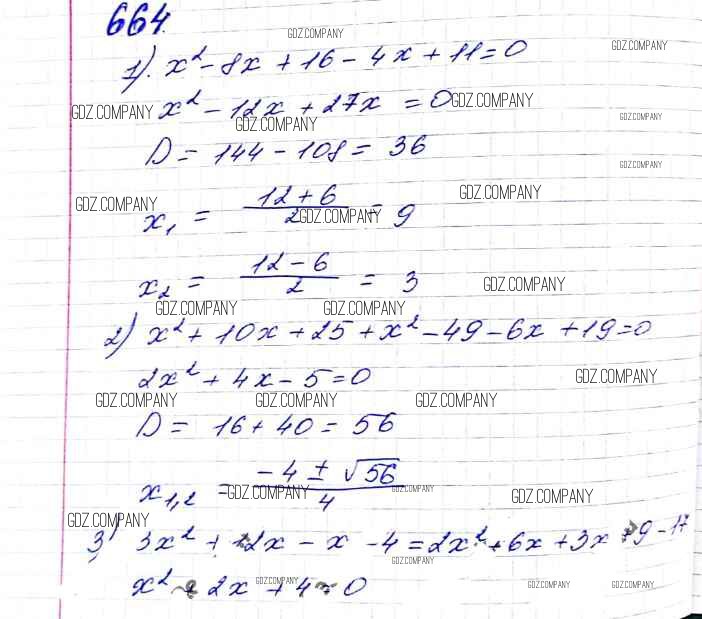 664.
GDZ.COMPANY
GDZ.COMPANY
1). x² - 8x + 16 - 4x + 11 = 0
GDZ.COMPANY x² - 12x + 27x = 0 GDZ.COMPANY
GDZ.COMPANY
GDZ.COMPANY
D = 144 - 108 = 36
GDZ.COMPANY
GDZ.COMPANY
GDZ.COMPANY
x₁ = (12 + 6)/2 = 9
GDZ.COMPANY
x₂ = (12 - 6)/2 = 3
GDZ.COMPANY
GDZ.COMPANY GDZ.COMPANY
2) x² + 10x + 25 + x² - 49 - 6x + 19 = 0
2x² + 4x - 5 = 0
GDZ.COMPANY
GDZ.COMPANY GDZ.COMPANY GDZ.COMPANY
D = 16 + 40 = 56
x₁,₂ = (-4 ± √56)/4
GDZ.COMPANY GDZ.COMPANY GDZ.COMPANY
GDZ.COMPANY
3) 3x² + 12x - x - 4 = 2x² + 6x + 3x + 9 - 17
x² + 2x + 4 = 0
GDZ.COMPANY GDZ.COMPANY GDZ.COMPANY